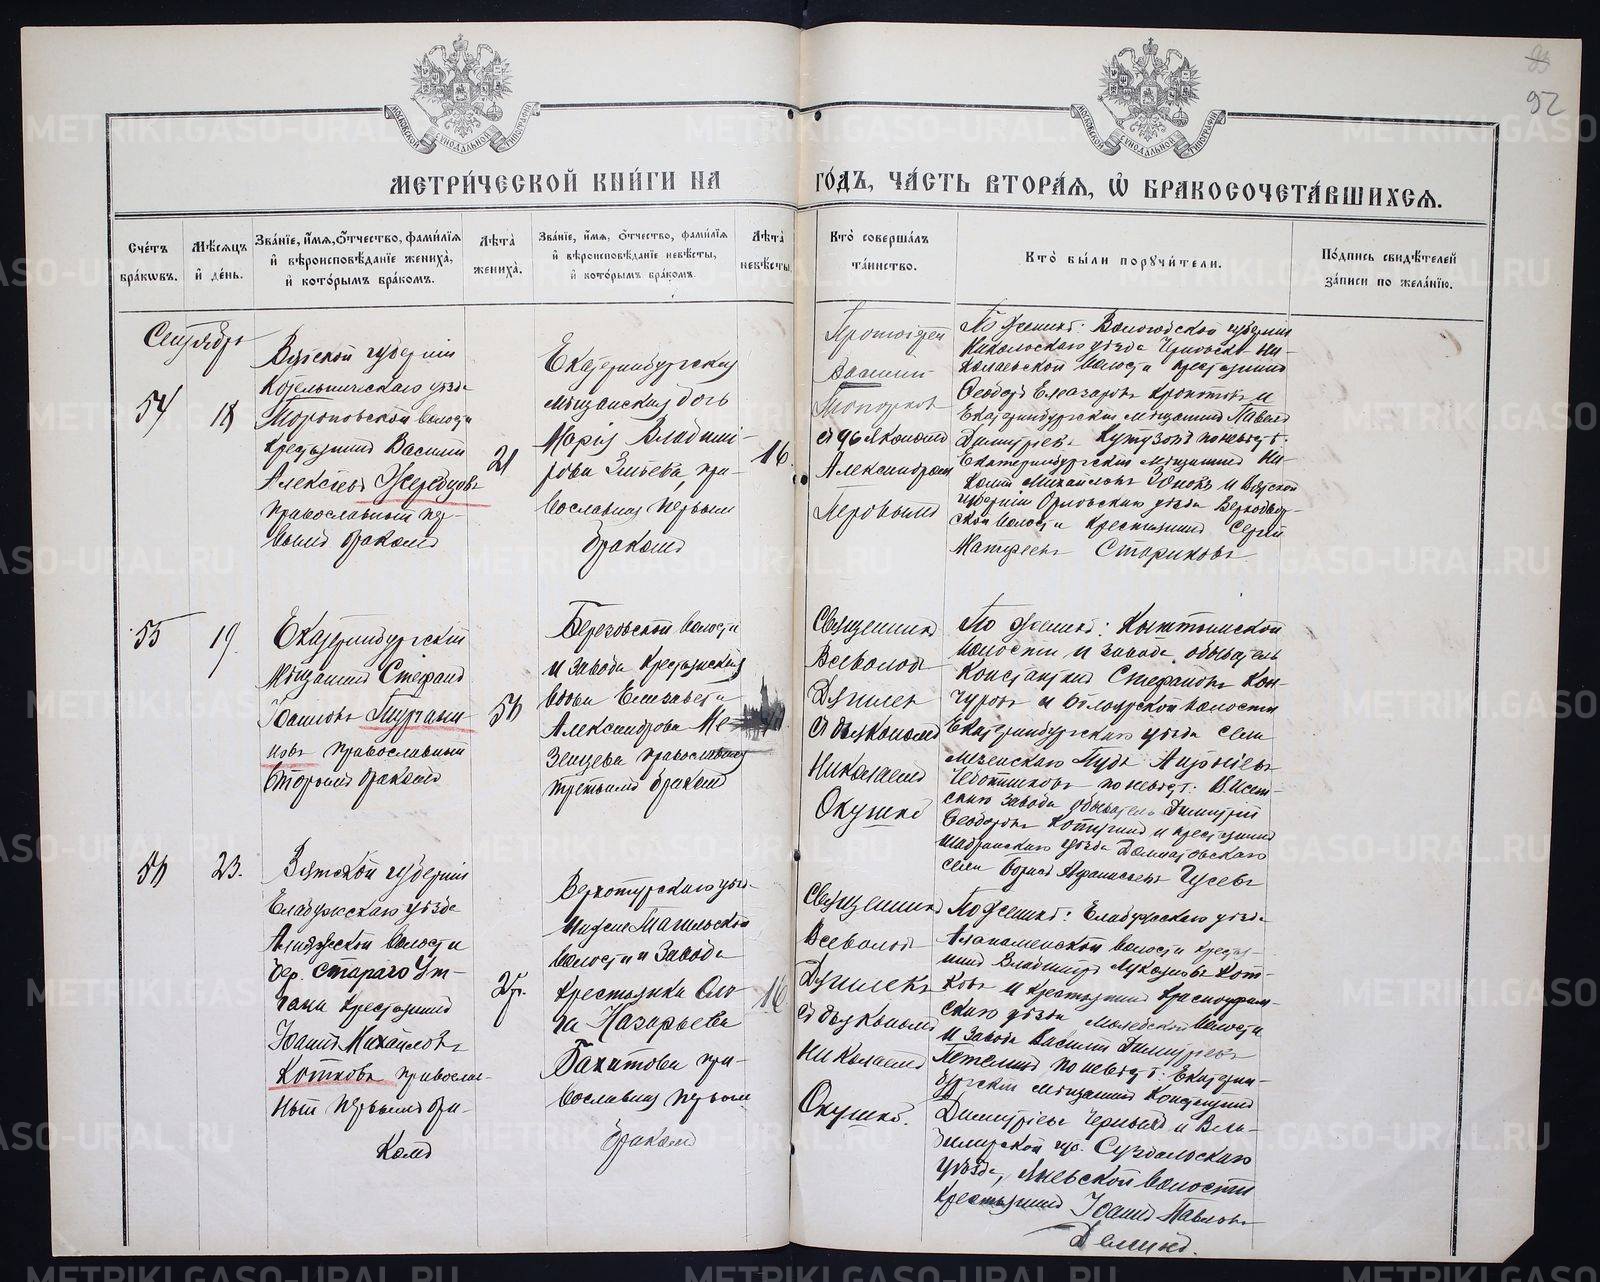 93
92
МЕТРИ́ЧЕСКОЙ КНИ́ГИ НА
ГО́ДЪ, ЧА́СТЬ ВТОРА́Я, Ѡ БРАКОСОЧЕТА́ВШИХСЯ.
Сче́тъ бра́кѡвъ.
Мѣ́сяцъ и́ де́нь.
Зва́нїе, и́мя, о́тчество, фами́лїя и́ вѣроисповѣ́данїе жениха̀, и́ кото́рымъ бра́комъ.
Лѣта̀ жениха̀.
Зва́нїе, и́мя, о́тчество, фами́лїя и́ вѣроисповѣ́данїе невѣ́сты, и́ кото́рымъ бра́комъ.
Лѣта̀ невѣ́сты.
Кто̀ соверша́лъ та́инство.
Кто̀ бы́ли поручи́тели.
По́дпись свидѣ́телей за́писи по жела́нїю.
Сентябрь
54
18
Вятской губернiи
Котельническаго уѣзда
Тороповской волости
крестьянинъ Василiй
Алексѣевъ Жеребцовъ
православный пер-
вымъ бракомъ
21
Екатеринбургская
мѣщанская дочь
Марiя Владимi-
рова Змѣева, пра-
вославная первымъ
бракомъ
16.
Протоiерей
Василий
Топорковъ
съ дьякономъ
Александромъ
Перовымъ
По женихѣ: Вологодской губернiи
Никольскаго уѣзда Ни-
колаевской волости крестьянинъ
Ѳеодоръ Елеазаровъ и
Екатеринбургскiй мѣщанинъ Павелъ
Димитрiевъ Кутузовъ по невѣстѣ:
Екатеринбургскiй мѣщанинъ Ни-
колай Михайловъ и Вятской
губернiи Орловскаго уѣзда
волости крестьянинъ Сергiй
Матѳеевъ Стариковъ
55
19.
Екатеринбургскiй
мѣщанинъ Стефанъ
Iоанновъ Пургани-
новъ православный
вторымъ бракомъ
56
Березовской волости
и завода крестьянская
вдова Елизавета
Александрова Ме-
зенцева православная
третьимъ бракомъ
Священникъ
Всеволодъ
Дунилевъ
съ дьякономъ
Николаемъ
Окушко
По женихѣ: Кыштымской
волости и завода обыватель
Константинъ Стефановъ Кон-
чуровъ и волости
Екатеринбургскаго уѣзда села
Мезенскаго Антонiевъ
по невѣстѣ:
скаго завода обыватель Димитрiй
Ѳеодоровъ и крестьянинъ
Шадринскаго уѣзда Далматовскаго
села Борисъ Афанасьевъ Гусевъ
56
23.
Вятской губернiи
Елабужскаго уѣзда
волости
дер. Стараго Ут-
чана крестьянинъ
Iоаннъ Михайловъ
Котковъ православ-
ный первымъ бра-
комъ
25.
Верхотурскаго уѣз-
Нижне Тагильской
волости и завода
крестьянка Оль-
га Назарьева
Бахитова пра-
вославная первымъ
бракомъ
16
Священникъ
Всеволодъ
Дунилевъ
съ дьякономъ
Николаемъ
Окушко.
По женихѣ: Елабужскаго уѣзда
волости кресть-
янинъ Владимiръ Кот-
ковъ и крестьянинъ Красноуфим-
скаго уѣзда Молебской волости
и завода Василiй Димитрiевъ
по невѣстѣ: Екатерин-
бургскiй мѣщанинъ Константинъ
Димитрiевъ и Вла-
димирской губ. Суздальскаго
уѣзда, волости
крестьянинъ Iоаннъ Павловъ
Деминъ.
METRIKI.GASO-URAL.RU